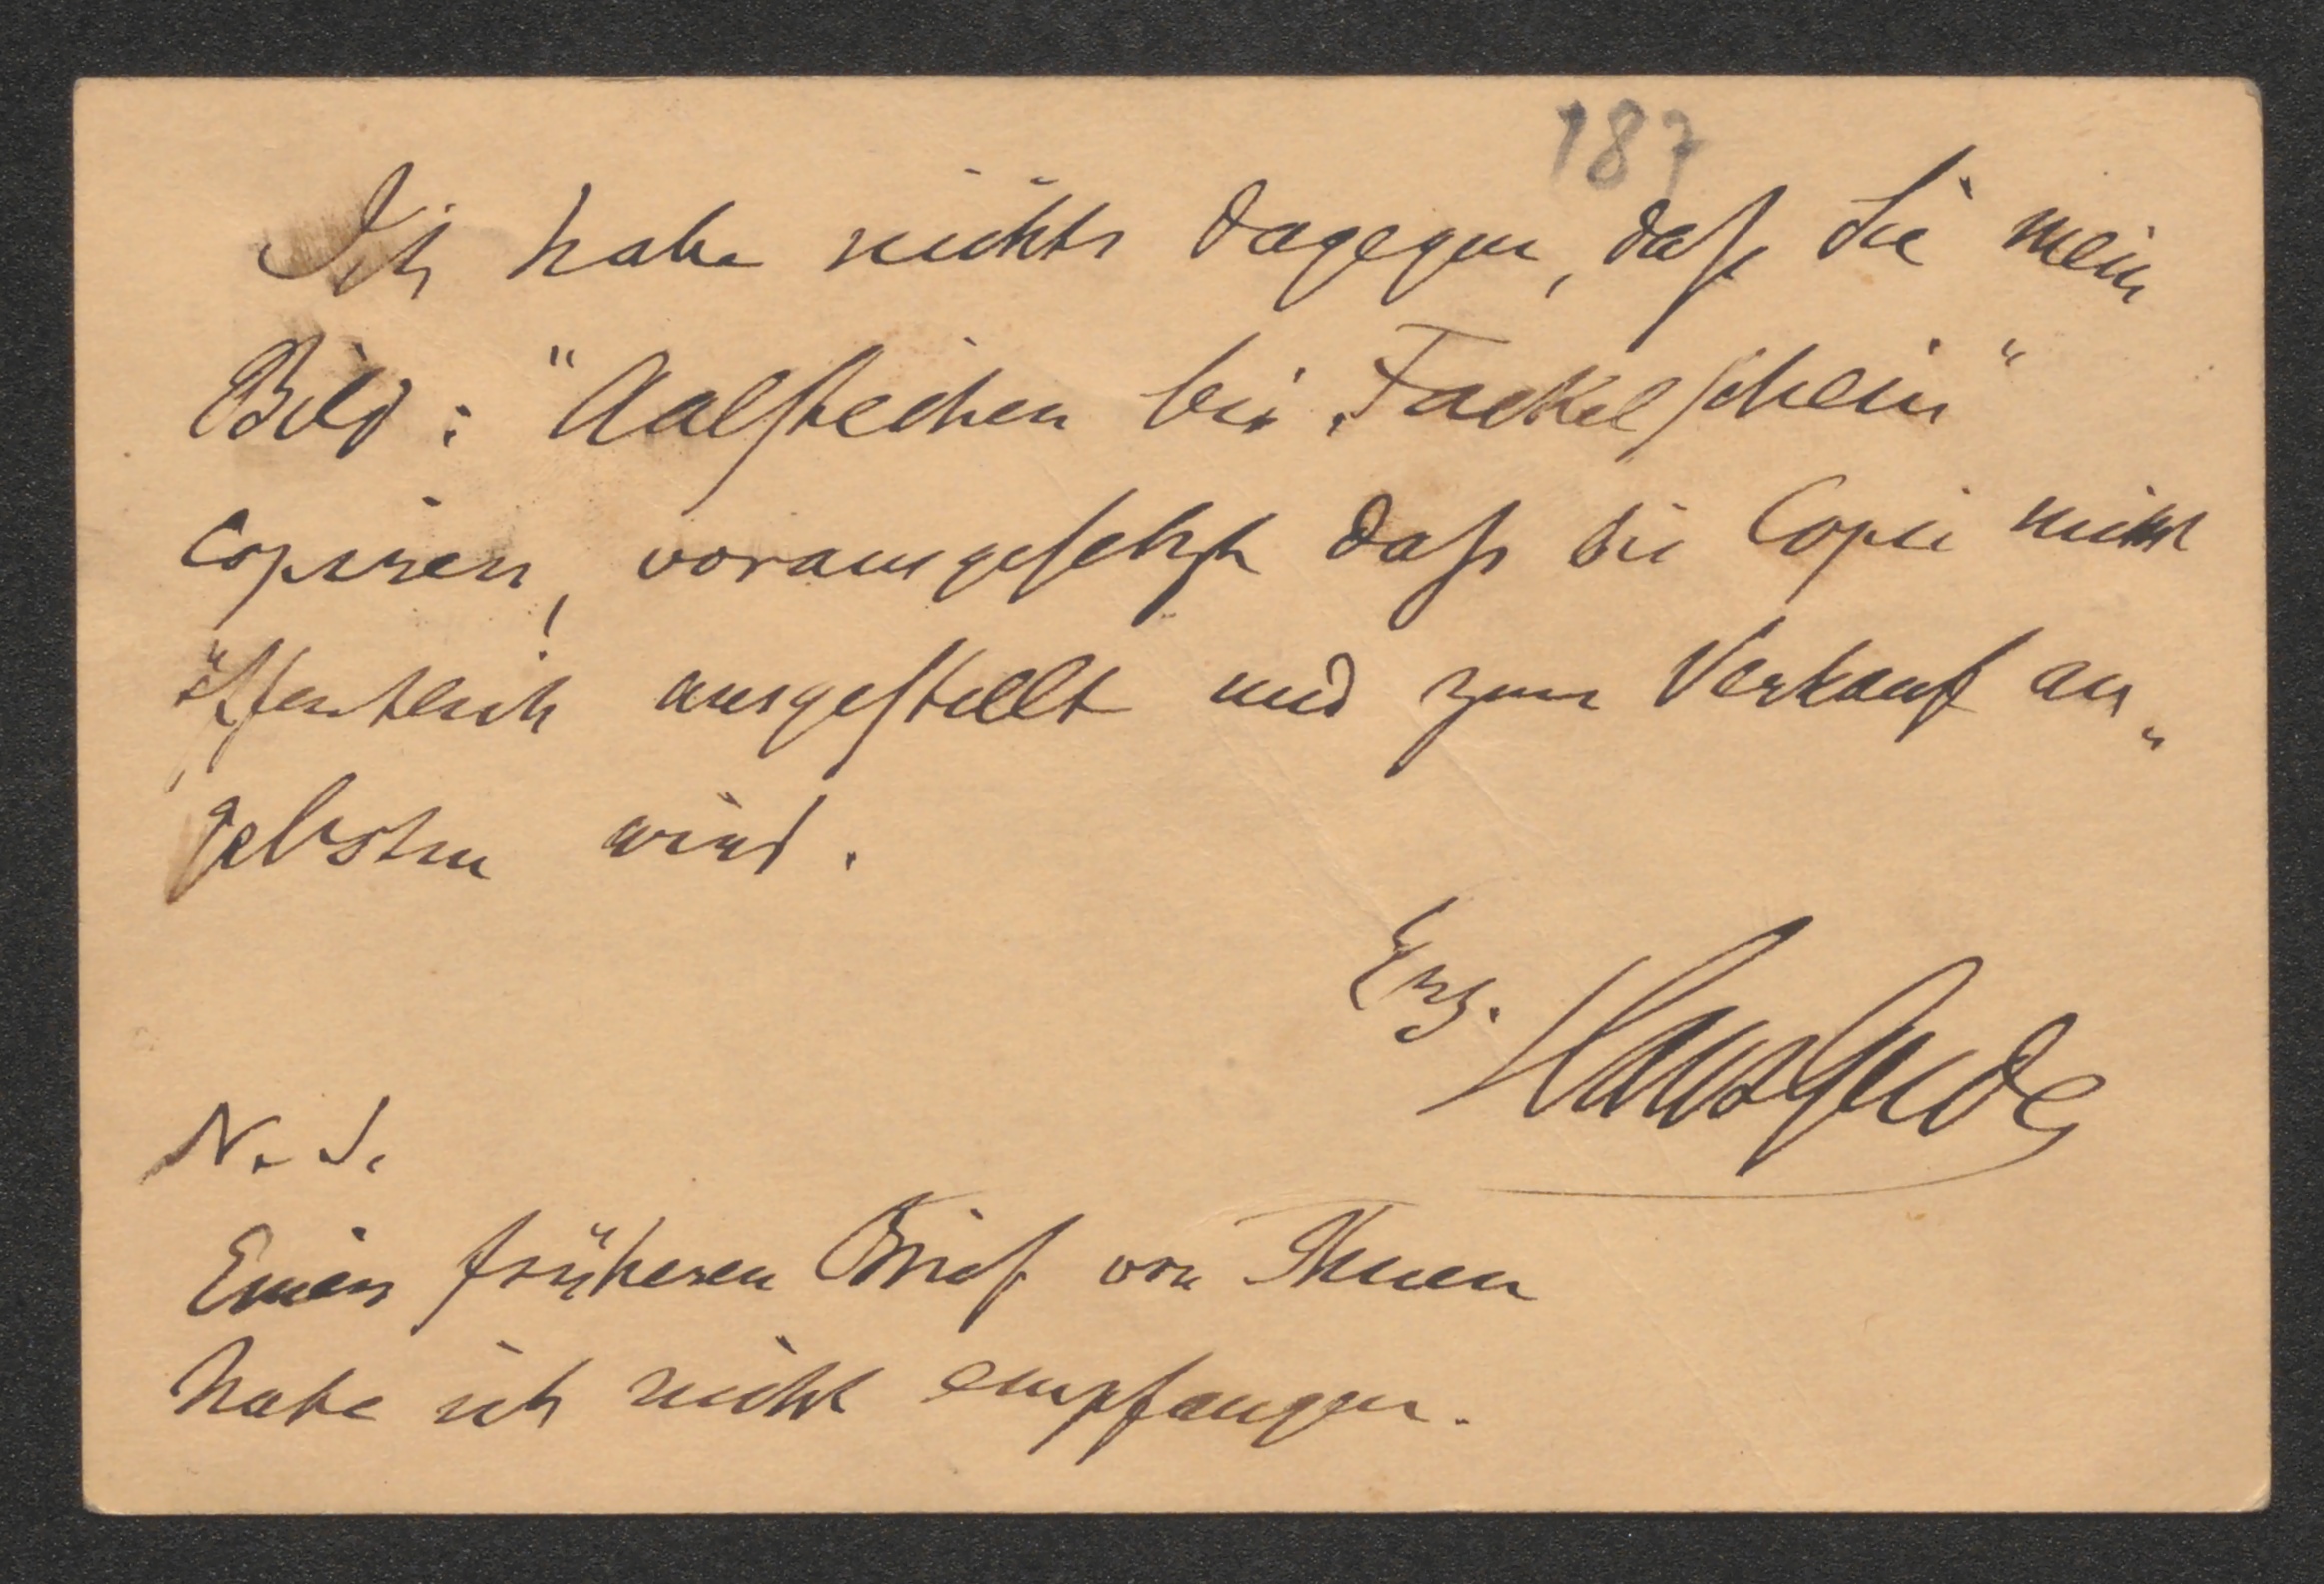 187
Ich habe nichts dagegen, daß Sie mein
Bild: "Aalstechen bei Fackelschein"
copiren, vorausgesetzt daß die Copie nicht
öffentlich ausgestellt und zum Verkauf an-
geboten wird.
Hans Gude
N. S.
Einen früheren Brief von Ihnen
habe ich nicht empfangen.